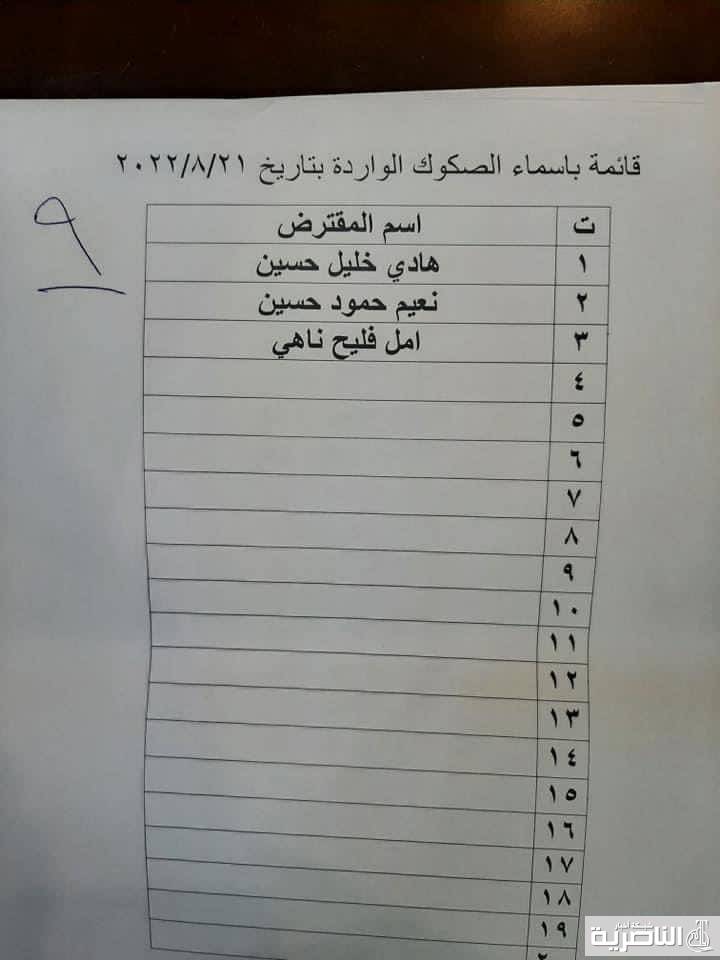 قائمة باسماء الصكوك الواردة بتاريخ ٢٠٢٢/٨/٢١
٩
ت اسم المقترض
١ هادي خليل حسين
٢ نعيم حمود حسين
٣ امل فليح ناهي
٤
٥
٦
٧
٨
٩
١٠
١١
١٢
١٣
١٤
١٥
١٦
١٧
١٨
١٩
شبكة اخبار
الناصرية